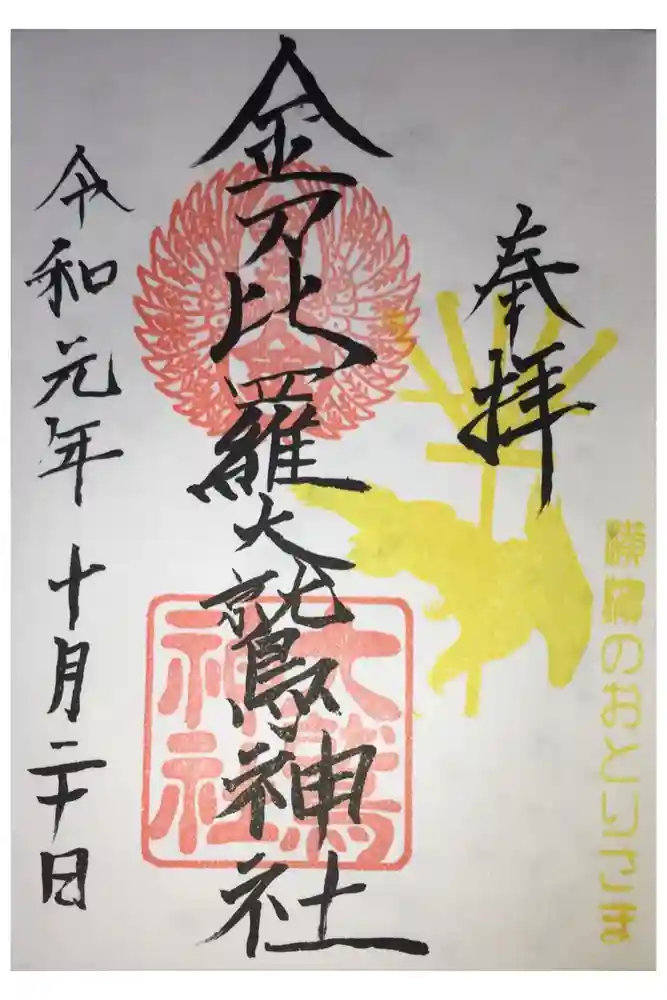 奉拝
横濱のおとりさま
金刀比羅大鷲神社
大鷲神社
令和元年十月二十日